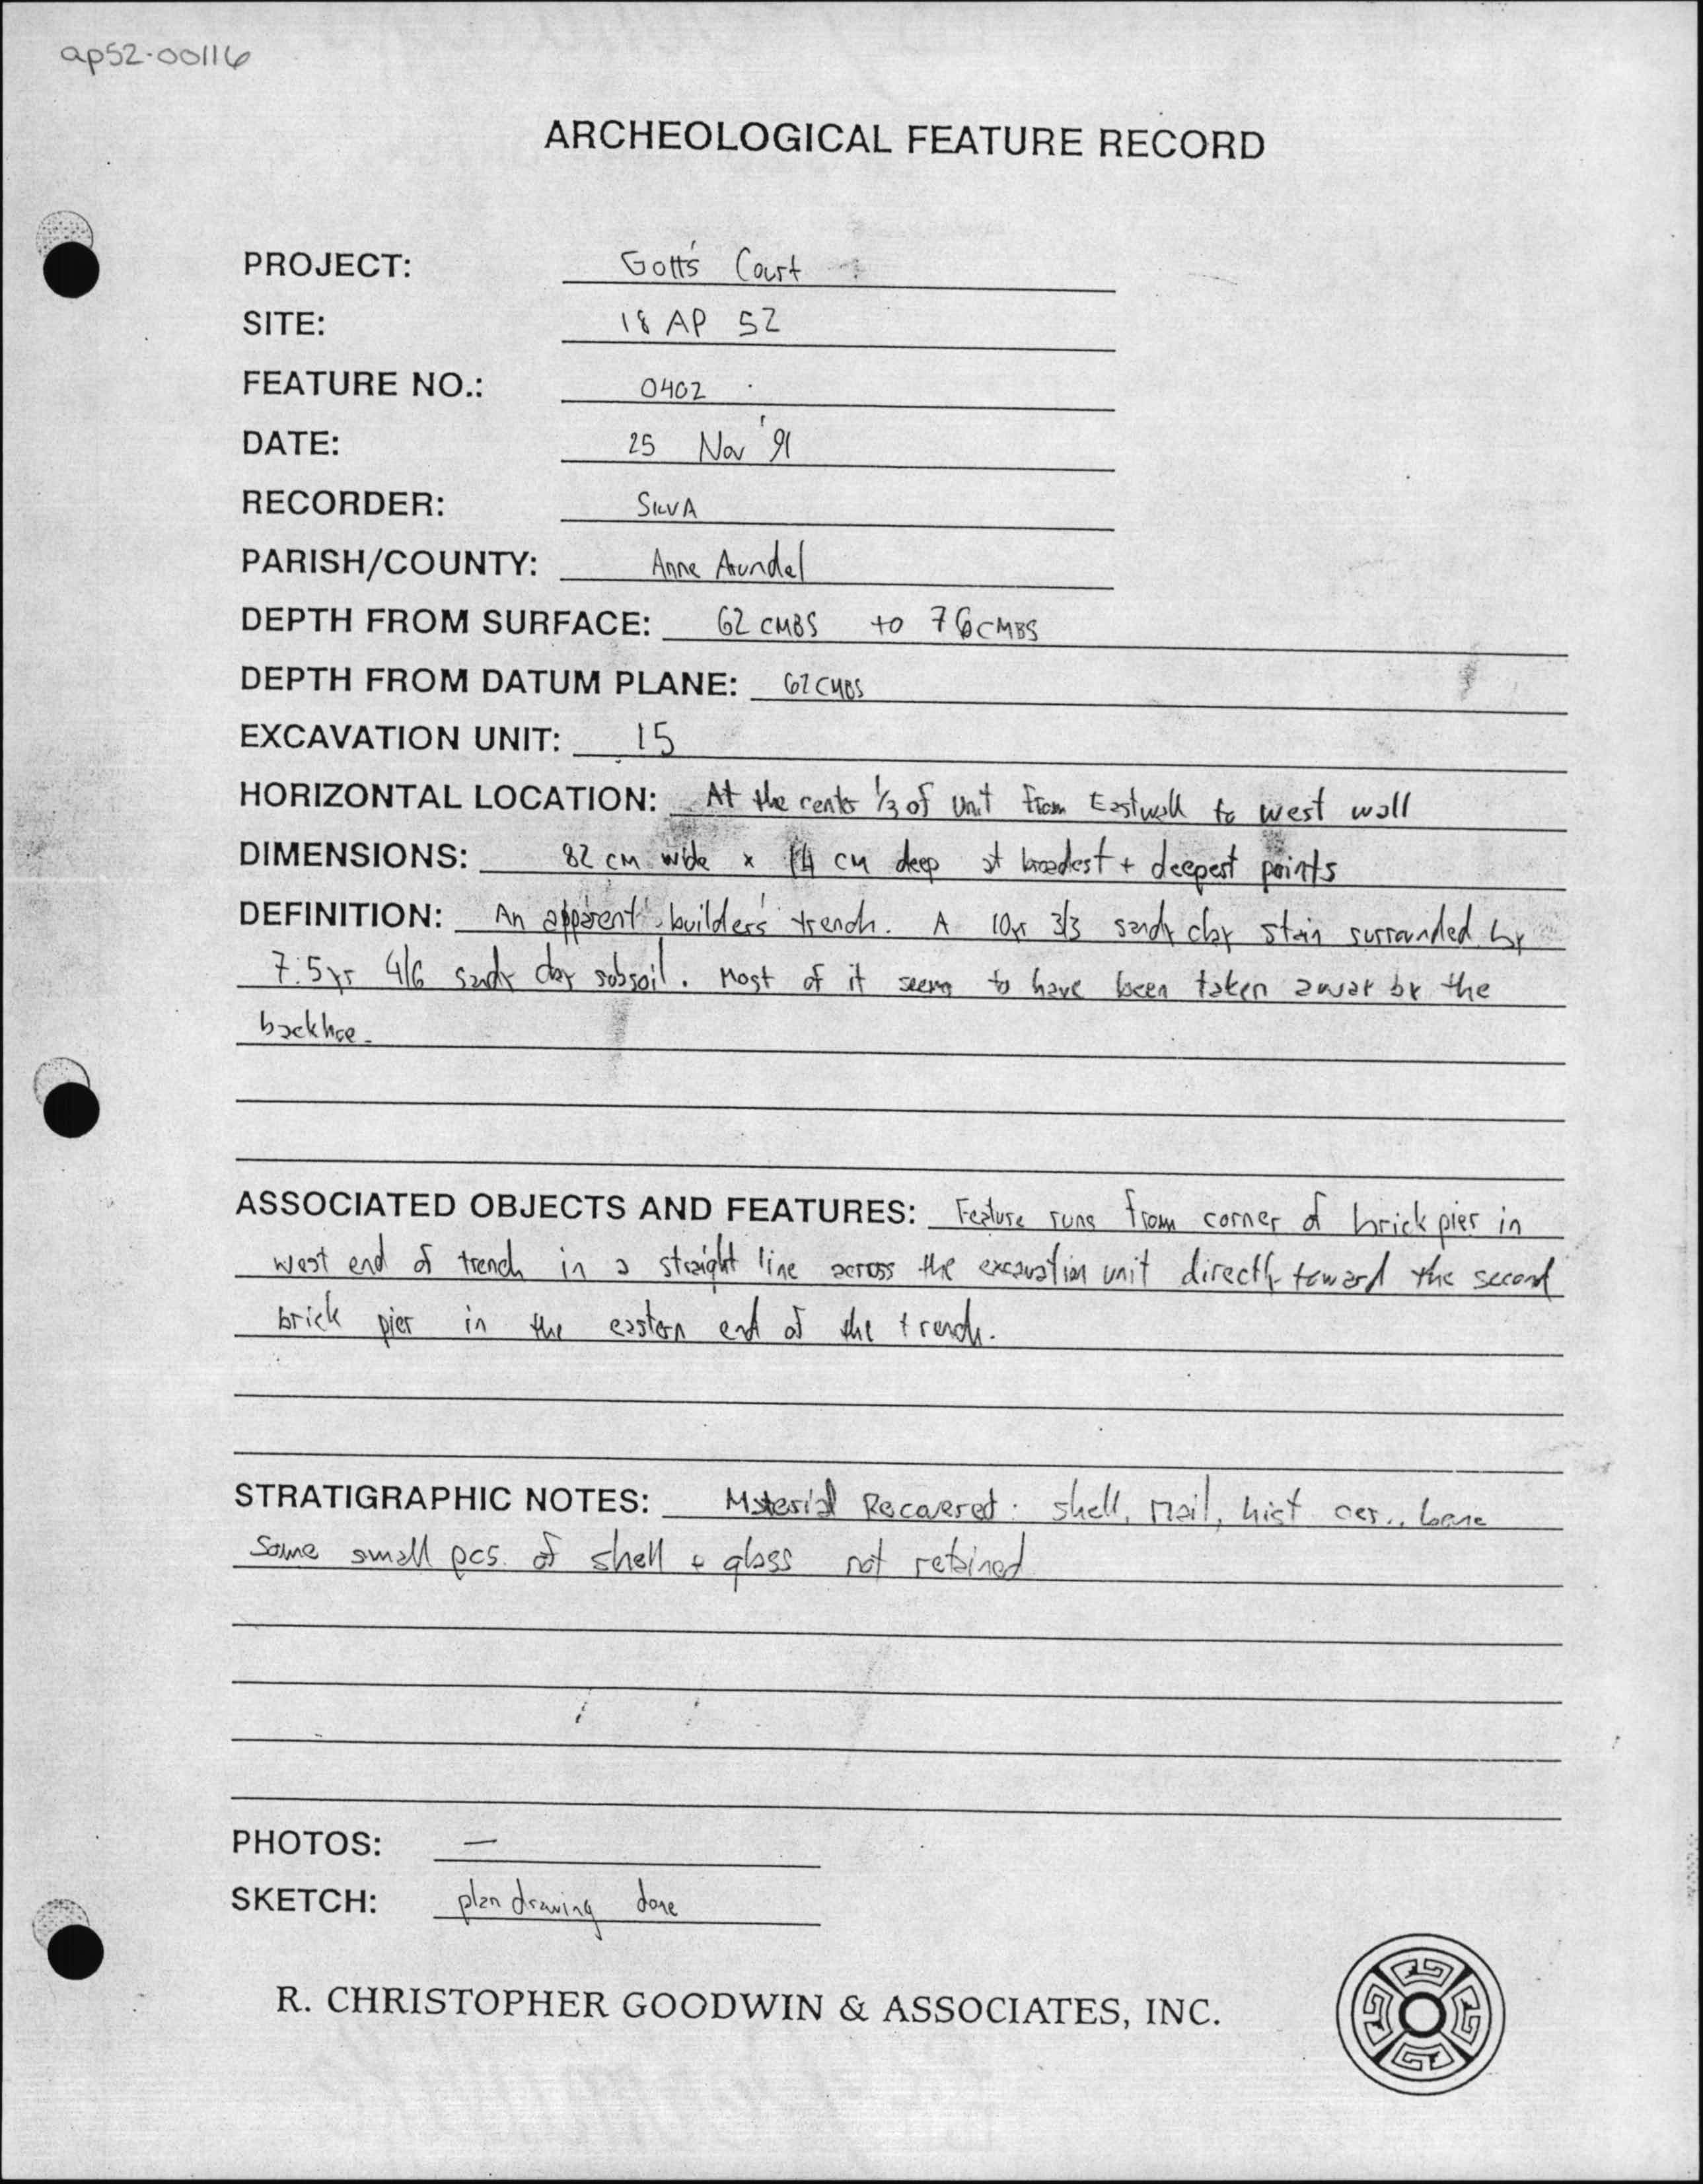 ap52-00116
ARCHEOLOGICAL FEATURE RECORD
PROJECT: Gott's Court
SITE: 18 AP 52
FEATURE NO.: 0402
DATE: 25 Nov '91
RECORDER: SILVA
PARISH/COUNTY: Anne Arundel
DEPTH FROM SURFACE: 62 CMBS to 76 CMBS
DEPTH FROM DATUM PLANE: 62 CMBS
EXCAVATION UNIT: 15
HORIZONTAL LOCATION: At the center 1/3 of unit from East wall to west wall
DIMENSIONS: 82 cm wide x 14 cm deep at broadest + deepest points
DEFINITION: An apparent builder's trench. A 10yr 3/3 sandy clay stain surrounded by
7.5yr 4/6 sandy clay subsoil. Most of it seems to have been taken away by the
backhoe.
ASSOCIATED OBJECTS AND FEATURES: Feature runs from corner of brick pier in
west end of trench in a straight line across the excavation unit directly toward the second
brick pier in the eastern end of the trench.
STRATIGRAPHIC NOTES: Material Recovered: shell, nail, hist cer., bone
Some small pcs. of shell & glass not retained
PHOTOS: —
SKETCH: plan drawing done
R. CHRISTOPHER GOODWIN & ASSOCIATES, INC.